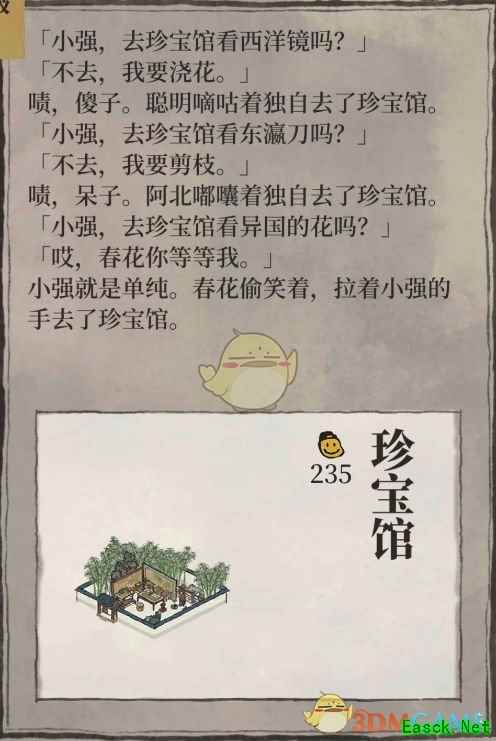 「小强，去珍宝馆看西洋镜吗？」
「不去，我要浇花。」
啧，傻子。聪明嘀咕着独自去了珍宝馆。
「小强，去珍宝馆看东瀛刀吗？」
「不去，我要剪枝。」
啧，呆子。阿北嘟囔着独自去了珍宝馆。
「小强，去珍宝馆看异国的花吗？」
「哎，春花你等等我。」
小强就是单纯。春花偷笑着，拉着小强的
手去了珍宝馆。
珍宝馆
235
3DMGAME
Easck.Net